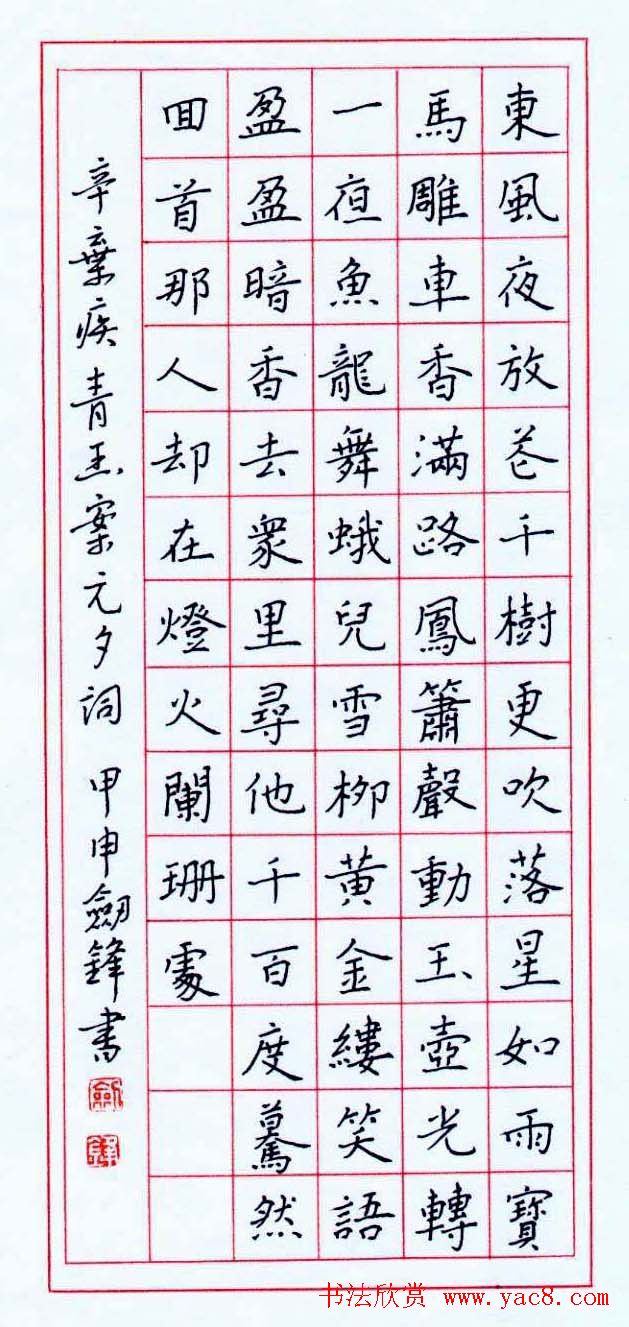 東風夜放花千樹更吹落星如雨寶
馬雕車香滿路鳳簫聲動玉壺光轉
一夜魚龍舞蛾兒雪柳黄金縷笑語
盈盈暗香去衆里尋他千百度驀然
回首那人却在燈火闌珊處
辛棄疾青玉案元夕詞 甲申劍鋒書
劍
鋒
书法欣赏 www.yac8.com